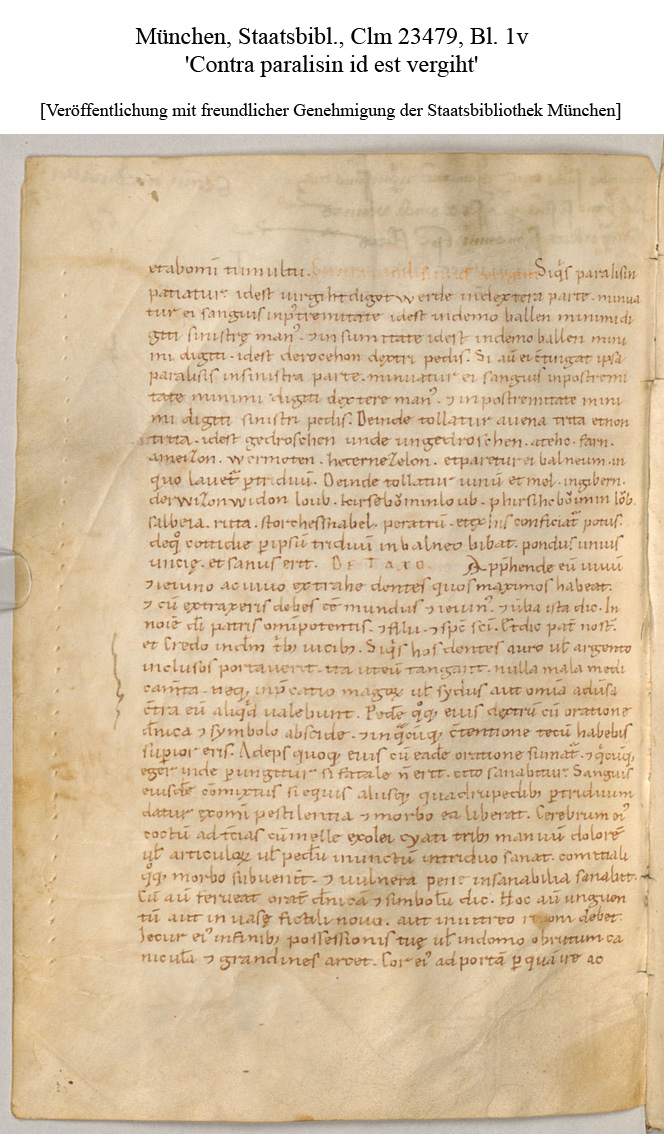 München, Staatsbibl., Clm 23479, Bl. 1v
'Contra paralisin id est vergiht'
[Veröffentlichung mit freundlicher Genehmigung der Staatsbibliothek München]
et abomī tumultu. Siq͛s paralisin
patiatur idest uirgiht digot werde in dextera parte. minua
tur ei sanguis in idest in demo ballen minimi di
giti sinistrę manꝰ. ⁊ in sumitate idest in demo ballen mini
mi digiti. idest derocehon dextri pedis. Si aū ei ctingat ipsa
paralisis in sinistra parte. minuatur ei sanguis in postremi
tate minimi digiti dextere manꝰ. ⁊ in postremitate mini
mi digiti sinistri pedis. Deinde tollatur auena trita et non
trita. idest gedroschen unde ungedroschen. ateho. farn.
ameiʒon. wermoten. heternezelon. et paretur ei balneum. in
quo lauet ꝑ triduū. Deinde tollatur uinū et mel. ingibern.
der wiʒon widon loub. kirsebōminloub. phirsihcbōimin lōb.
salbeia. rutta. storchessnabel. peratrū. et ex his conficiat̄ potus.
de q̊ cottidie ꝑ ipsū triduū in balneo bibat. pondus unius
uncię. et sanus erit. DE TAXO. Apphende eū uiuū
⁊ ieiuno ac uiuo extrahe dentes quos maximos habeat.
⁊ cū extraxeris debes eē mundus ⁊ ieiunꝰ. ⁊ uba ista dic. In
noīe dī patris omīpotentis. ⁊ filii. ⁊ spc sci. Et dic pat̄ nost̄.
et Credo in dm̄ t̄b uicibꝫ. Siq͛s hos dentes auro ul̄ argento
inclusos portauerit. ita ut eū tangant. nulla mala medi
cam̄ta. neqꝫ inp̄catio magoꝝ ul̄ sydus aut omīa aduīsa
ct̄ra eū aliq͛d ualebunt. Pedē q̊qꝫ eius dextrū cū oratione
dn̄ica ⁊ symbolo abscide. ⁊ in q̄cūqꝫ ctentione tecū habebis
supior eris. Adeps quoqꝫ eius cū eadē oratione sumat̄. ⁊ q̄cūqꝫ
eger inde pungitur si fatale n̄ erit. cito sanabitur. Sanguis
eiusdē cōmixtus si equis aliisqꝫ quadrupedibꝫ ꝑ triduum
datur ex omī pestilentia ⁊ morbo ea liberat. Cerebrum eiꝰ
coctū ad t̄cias cū melle ex olei cyati tribꝫ manuū dolorē
ul̄ articuloꝝ ul̄ pedū inunctū in triduo sanat. comitiali
q̊qꝫ morbo subuenit. ⁊ uulnera pene insanabilia sanabit.
Cū aū ferueat orat̄ dn̄icā ⁊ simbolū dic. Hoc aū unguen
tū aut in uase fictili nouo. aut in uitreo poni debet.
Iecur eiꝰ in finibꝫ possessionis tuę ul̄ in domo obrutum ca
niculā ⁊ grandines arcet. Cor eiꝰ ad portā ꝑ quā ire ac